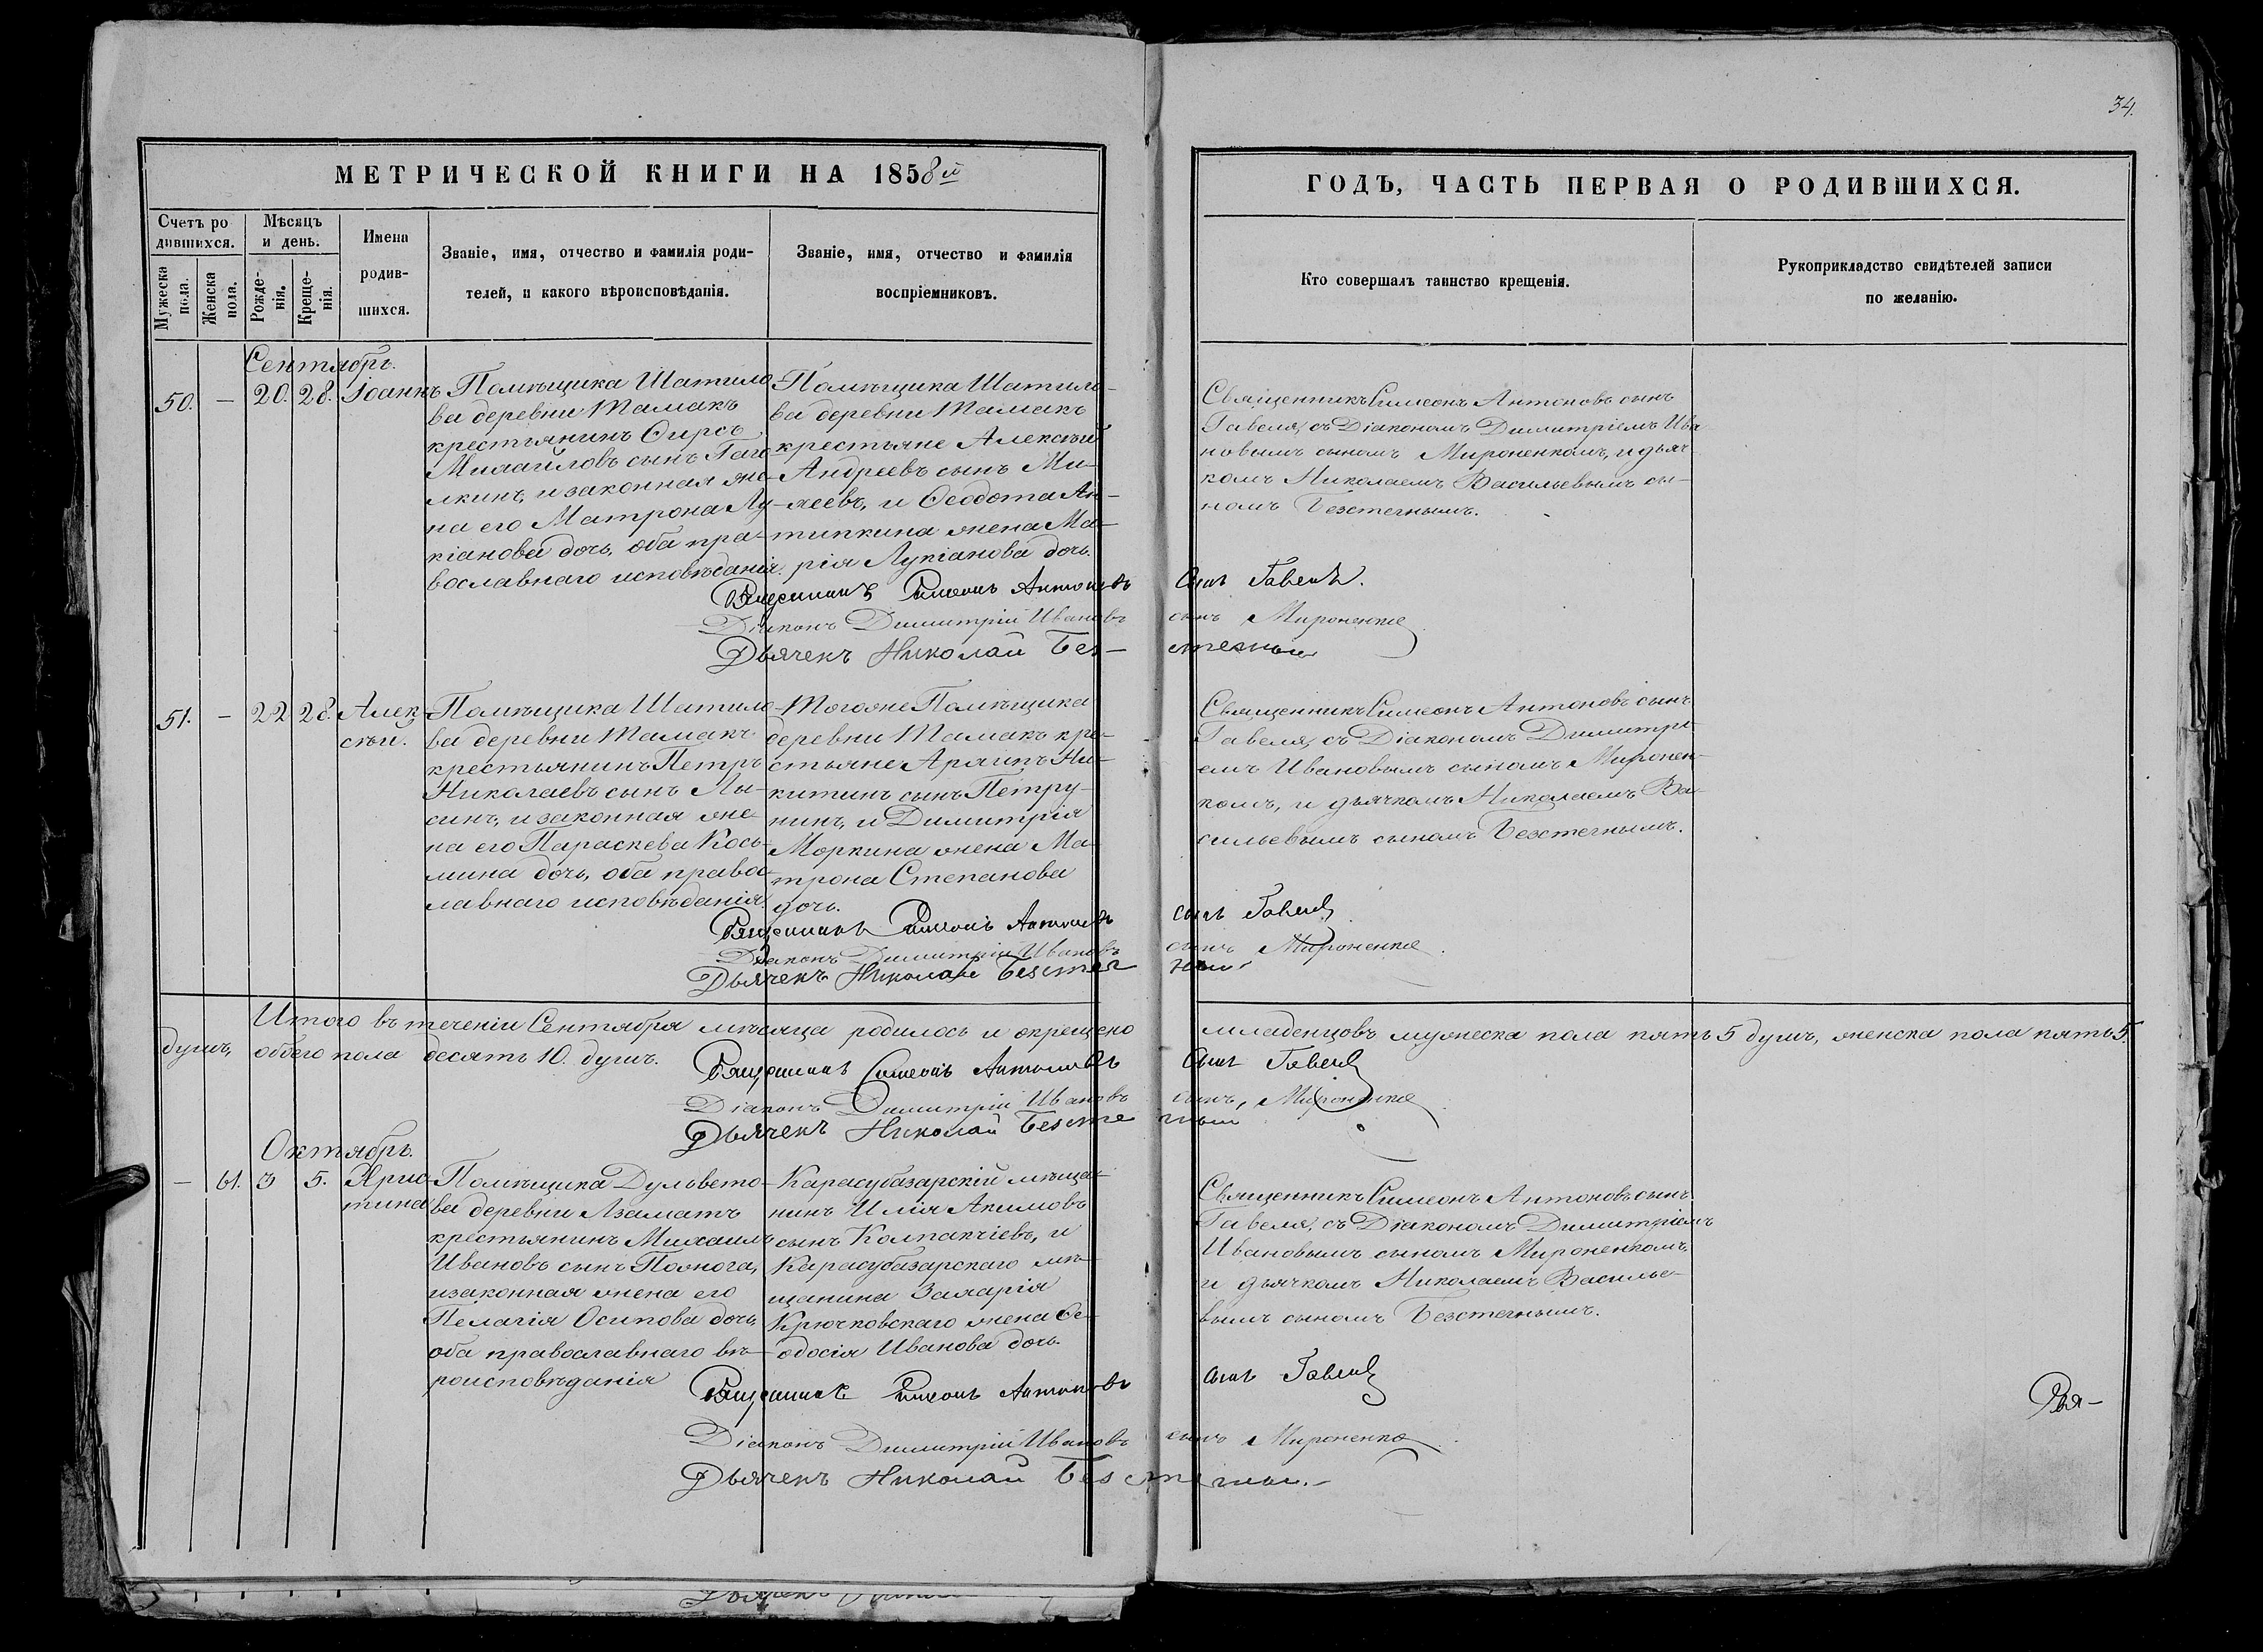 34.
МЕТРИЧЕСКОЙ КНИГИ НА 1858й
ГОДЪ, ЧАСТЬ ПЕРВАЯ О РОДИВШИХСЯ.
Счетъ ро
дившихся.
Мужеска
пола.
Женска
пола.
Мѣсяцъ
и день.
Рожде-
нія.
Креще-
нія.
Имена
родив-
шихся.
Званіе, имя, отчество и фамилія роди-
телей, и какого вѣроисповѣданія.
Званіе, имя, отчество и фамилія
воспріемниковъ.
Кто совершалъ таинство крещенія.
Рукоприкладство свидѣтелей записи
по желанію.
Сентябрь.
50. — 20. 28. Іоаннъ
Помѣщика Шатило-
ва деревни Тамакъ
крестьянинъ Ѳирсъ
Михайловъ сынъ
и законная же-
на его Матрона Лу-
кіанова дочь, оба пра-
вославнаго исповѣданія.
Помѣщика Шатило-
ва деревни Тамакъ
крестьяне Алексѣй
Андреевъ сынъ Ми-
хеевъ, и Ѳеодота Ан-
типкина жена Ма-
рія Лукіанова дочь.
Священникъ Симеонъ Антоновъ сынъ
Гавеля, съ Діакономъ Димитріемъ Ива-
новымъ сыномъ Мироненкомъ, и дьяч-
комъ Николаемъ Васильевымъ сы-
номъ Безстегнымъ.
Священникъ Симеонъ Антоновъ сынъ Гавеля.
Діаконъ Димитрій Ивановъ сынъ Мироненко
Дьячекъ Николай Безстегный
51. — 22 28. Алек-
сѣй.
Помѣщика Шатило-
ва деревни Тамакъ
крестьянинъ Петръ
Николаевъ сынъ Лы-
синъ, и законная же-
на его Параскева Кось-
мина дочь, оба правос-
лавнаго исповѣданія.
Тогоже Помѣщика
деревни Тамакъ кре-
стьяне Архипъ Ни-
китинъ сынъ Петру-
нинъ, и Димитрія
Моркина жена Ма-
трона Степанова
дочь.
Священникъ Симеонъ Антоновъ сынъ
Гавеля, съ Діакономъ Димитрі-
емъ Ивановымъ сыномъ Миронен-
комъ, и дьячкомъ Николаемъ Ва-
сильевымъ сыномъ Безстегнымъ.
Священникъ Симеонъ Антоновъ сынъ Гавеля
Діаконъ Димитрій Ивановъ сынъ Мироненко.
Дьячекъ Николай Безстегный
Итого въ теченіи Сентября мѣсяца родилось и окрещено младенцовъ мужеска пола пять 5 душъ, женска пола пять 5.
душъ, обоего пола десять 10. душъ.
Священникъ Симеонъ Антоновъ сынъ Гавеля
Діаконъ Димитрій Ивановъ сынъ, Мироненко
Дьячекъ Николай Безстегный
Октябрь.
— 61. 3 5. Хрис-
тина
Помѣщика Дульвето-
ва деревни Азаматъ
крестьянинъ Михаилъ
Ивановъ сынъ Помога,
и законная жена его
Пелагія Осипова дочь
оба православнаго вѣ-
роисповѣданія
Карасубазарскій мѣща-
нинъ Илія Акимовъ
сынъ Колпакчіевъ, и
Карасубазарскаго мѣ-
щанина Захарія
Крючковскаго жена Ѳе-
одосія Иванова дочь.
Священникъ Симеонъ Антоновъ сынъ
Гавеля, съ Діакономъ Димитріемъ
Ивановымъ сыномъ Мироненкомъ,
и дьячкомъ Николаемъ Василье-
вымъ сыномъ Безстегнымъ.
Священникъ Симеонъ Антоновъ сынъ Гавеля
Діаконъ Димитрій Ивановъ сынъ Мироненко
Дьячекъ Николай Безстегный.